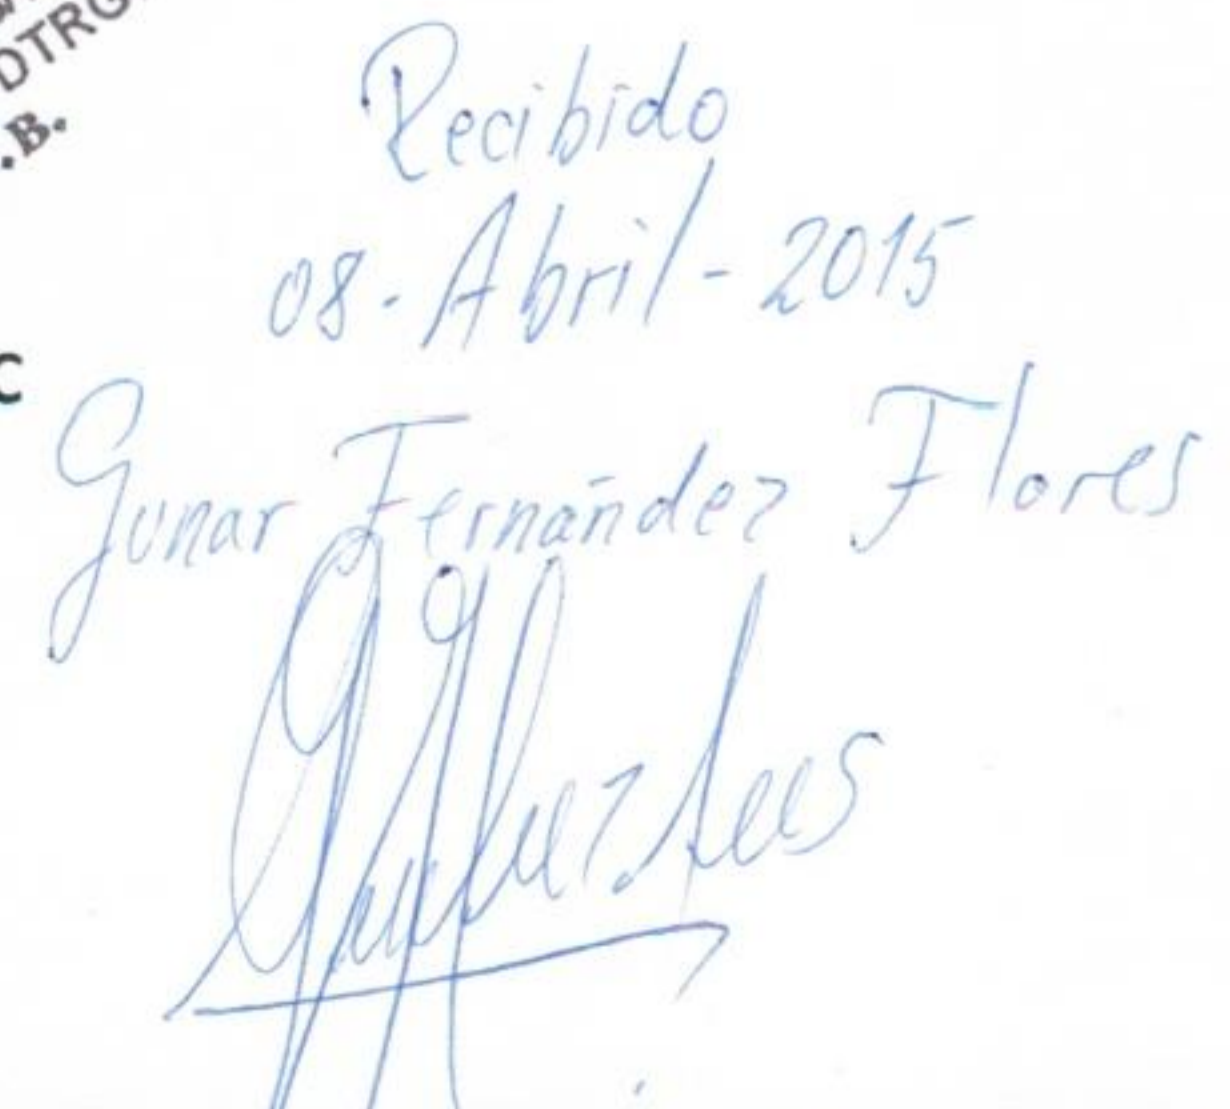 DTRG
.B.
Recibido
08-Abril-2015
C
Gunar Fernández Flores